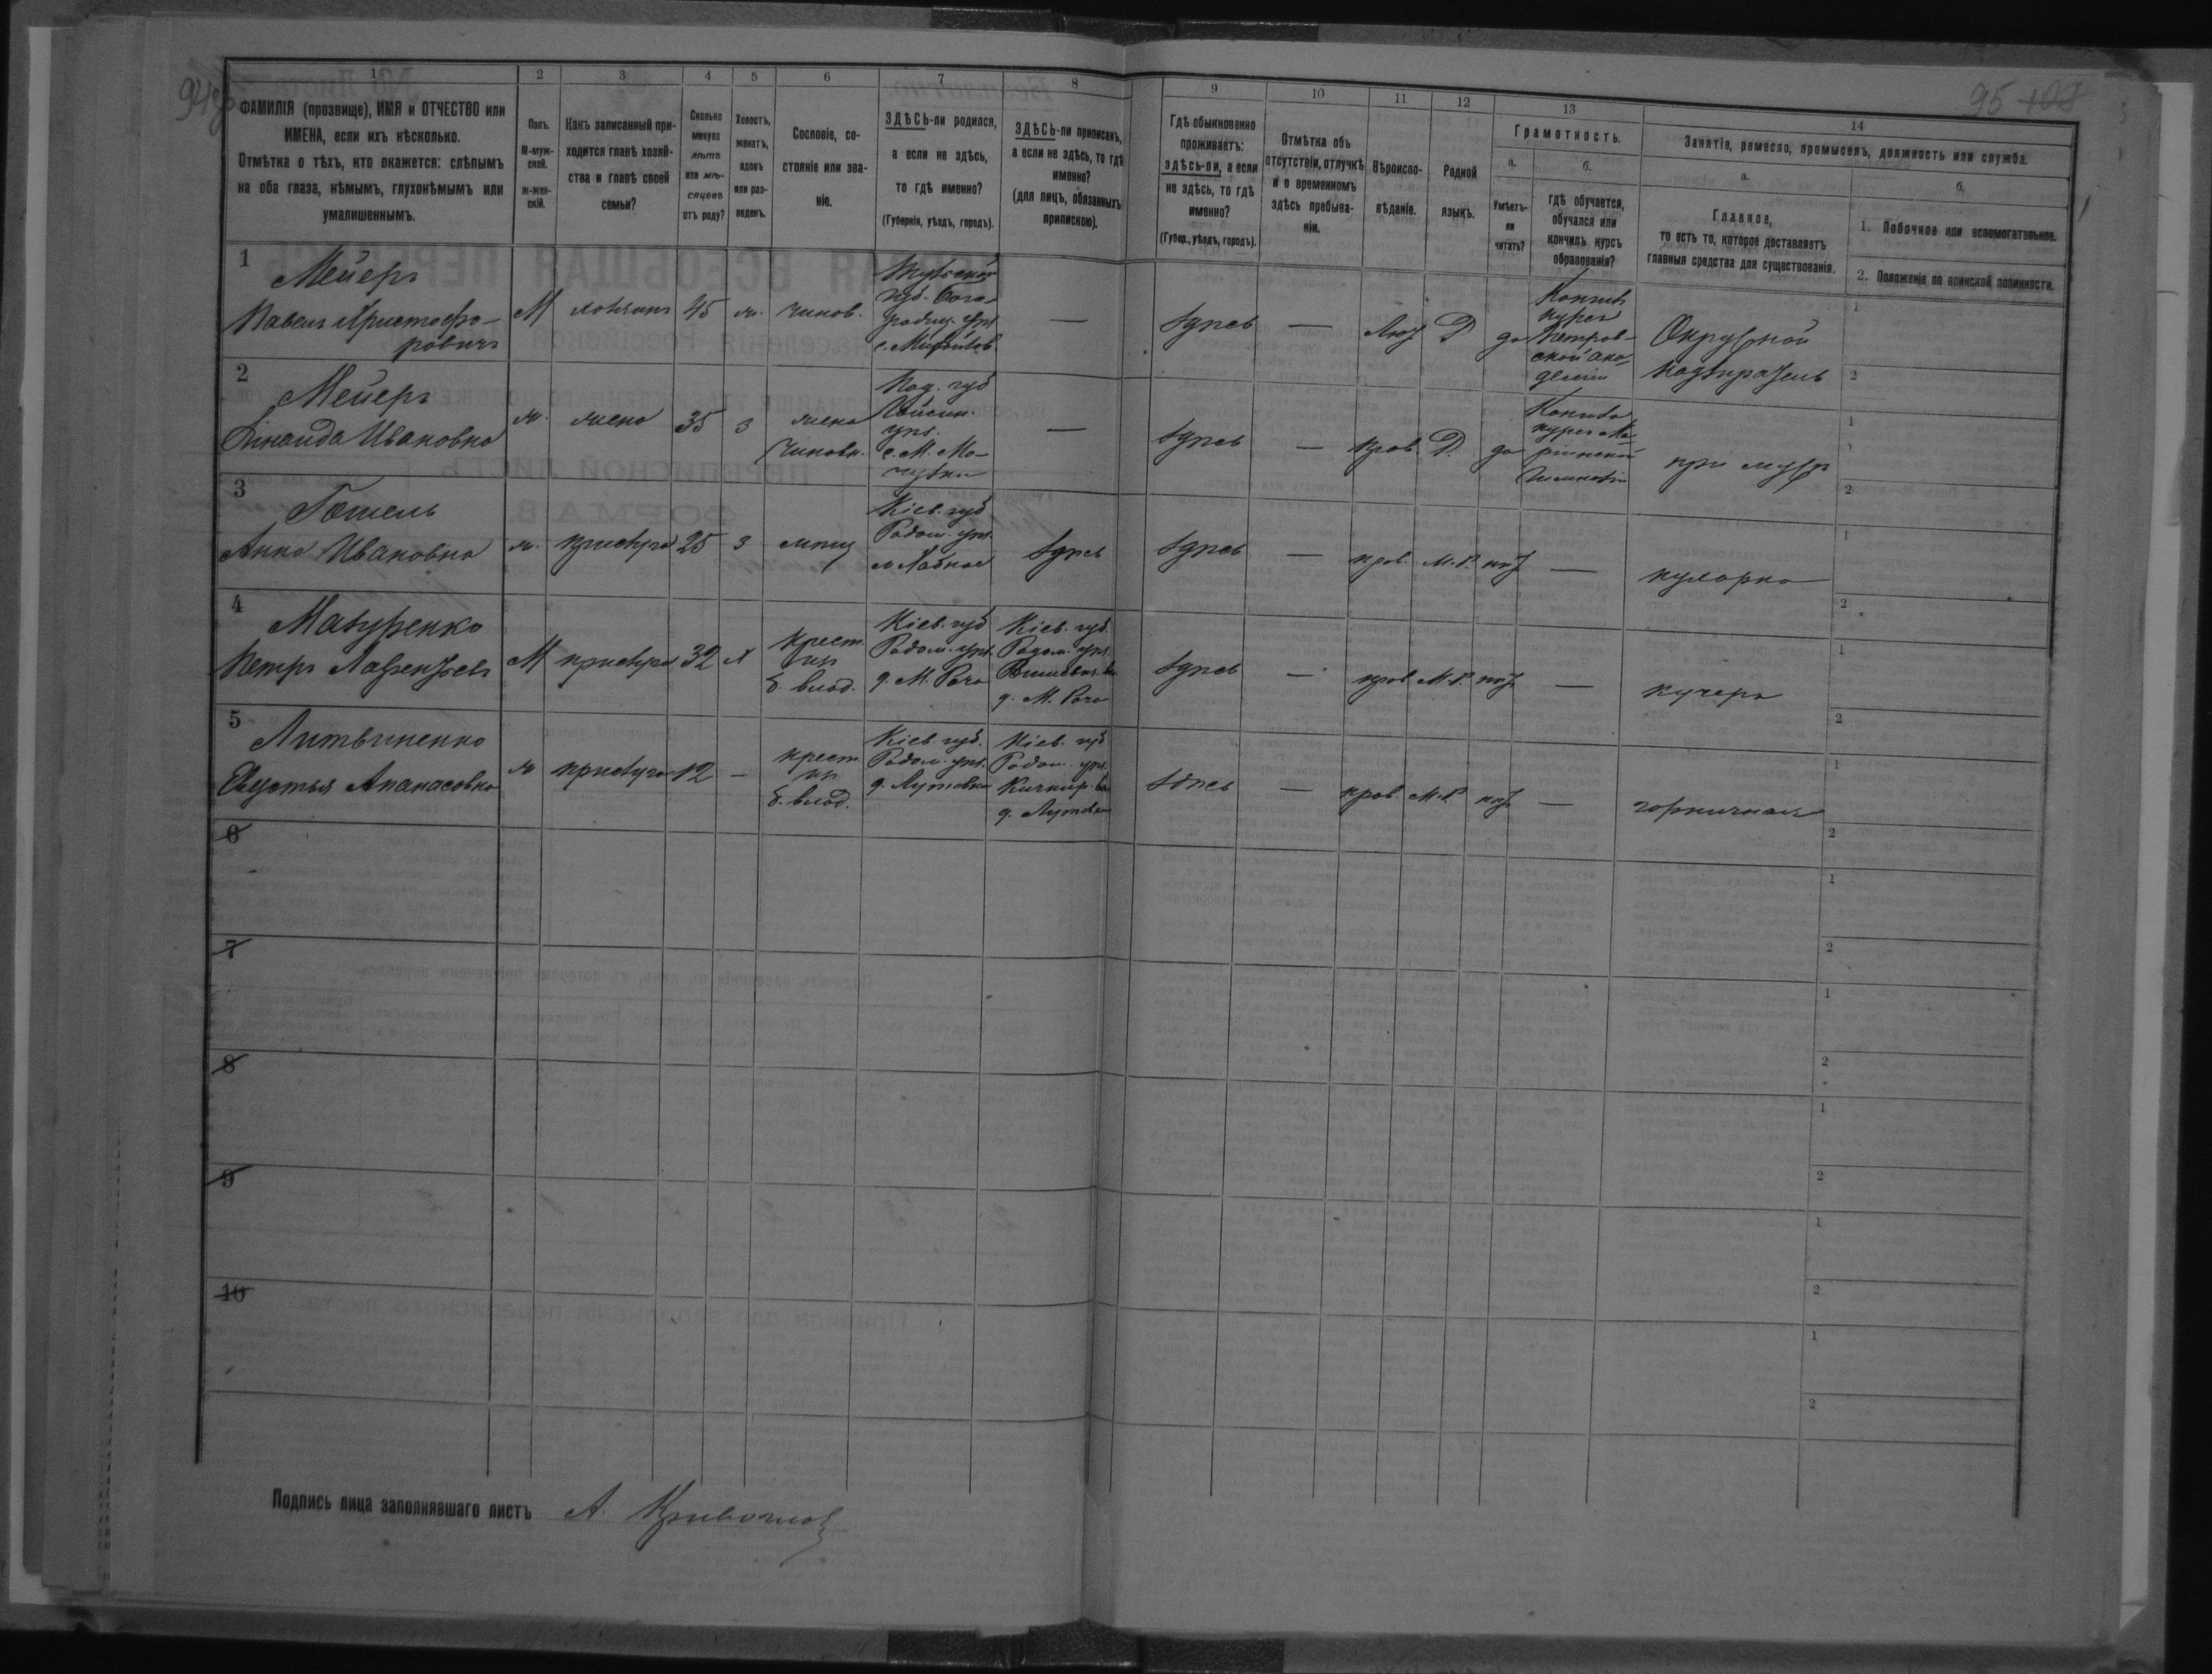 95 108
1 2 3 4 5 6 7 8 9 10 11 12 13 14
ФАМИЛІЯ (прозвище), ИМЯ и ОТЧЕСТВО или
ИМЕНА, если ихъ нѣсколько.
Отмѣтка о тѣхъ, кто окажется: слѣпымъ
на оба глаза, нѣмымъ, глухонѣмымъ или
умалишеннымъ.
Полъ.
М-муж-
ской.
ж-жен-
скій.
Какъ записанный при-
ходится главѣ хозяй-
ства и главѣ своей
семьи?
Сколько
минуло
лѣтъ
или мѣ-
сяцевъ
отъ роду?
Холостъ,
женатъ,
вдовъ
или раз-
веденъ.
Сословіе, со-
стояніе или зва-
ніе.
ЗДѢСЬ-ли родился,
а если не здѣсь,
то гдѣ именно?
(Губернія, уѣздъ, городъ).
ЗДѢСЬ-ли приписанъ,
а если не здѣсь, то гдѣ
именно?
(для лицъ, обязанныхъ
припискою).
Гдѣ обыкновенно
проживаетъ:
здѣсь-ли, а если
не здѣсь, то гдѣ
именно?
(Губер., уѣздъ, городъ).
Отмѣтка объ
отсутствіи, отлучкѣ
и о временномъ
здѣсь пребыва-
ніи.
Вѣроиспо-
вѣданіе.
Родной
языкъ.
Грамотность.
а.
Умѣетъ-
ли
читать?
б.
Гдѣ обучается,
обучался или
кончилъ курсъ
образованія?
Занятіе, ремесло, промыселъ, должность или служба.
а.
Главное,
то есть то, которое доставляетъ
главныя средства для существованія.
б.
1. Побочное или вспомогательное.
2. Положеніе по воинской повинности.
1
Мейеръ
Павелъ Христофо-
ровичъ
М
хозяинъ
45
ж.
чинов.
Тульской
губ. Бого-
родиц. уѣз.
—
здѣсь
—
Лют
Р
да
Кончилъ
курсъ
Петров-
ской ака-
деміи
Окружной
надзиратель
1
2
2
Мейеръ
Зинаида Ивановна
ж.
жена
35
з
жена
чиновн.
Под. губ
Гайсин.
уѣз.
—
здѣсь
—
прав.
Р.
да
Кончила
курсъ Ма
ріинской
гимназіи
при мужѣ
1
2
3
Анна Ивановна
ж.
прислуга
25
з
мѣщ
Кіев. губ
Радом. уѣз.
здѣсь
здѣсь
—
прав.
М.Р.
нѣт
—
кухарка
1
2
4
Мазуренко
Петръ Лаврентьевъ
М
прислуга
32
х
крест.
изъ
б. влад.
Кіев. губ
Радом. уѣз.
д. М. Рача
Кіев. губ.
Радом. уѣз.
д. М. Рача
здѣсь
—
прав
М.Р.
нѣт
—
кучеръ
1
2
5
Литвиненко
Апанасовна
ж
прислуга
12
—
крест
изъ
б. влад.
Кіев. губ.
Радом. уѣз.
д. Лутовка
Кіев. губ
Радом. уѣз.
Кичкир. в.
д. Лутовка
здѣсь
—
прав.
М.Р.
нѣт
—
горничная
1
2
6
1
2
7
1
2
8
1
2
9
1
2
10
1
2
Подпись лица заполнявшаго листъ А.